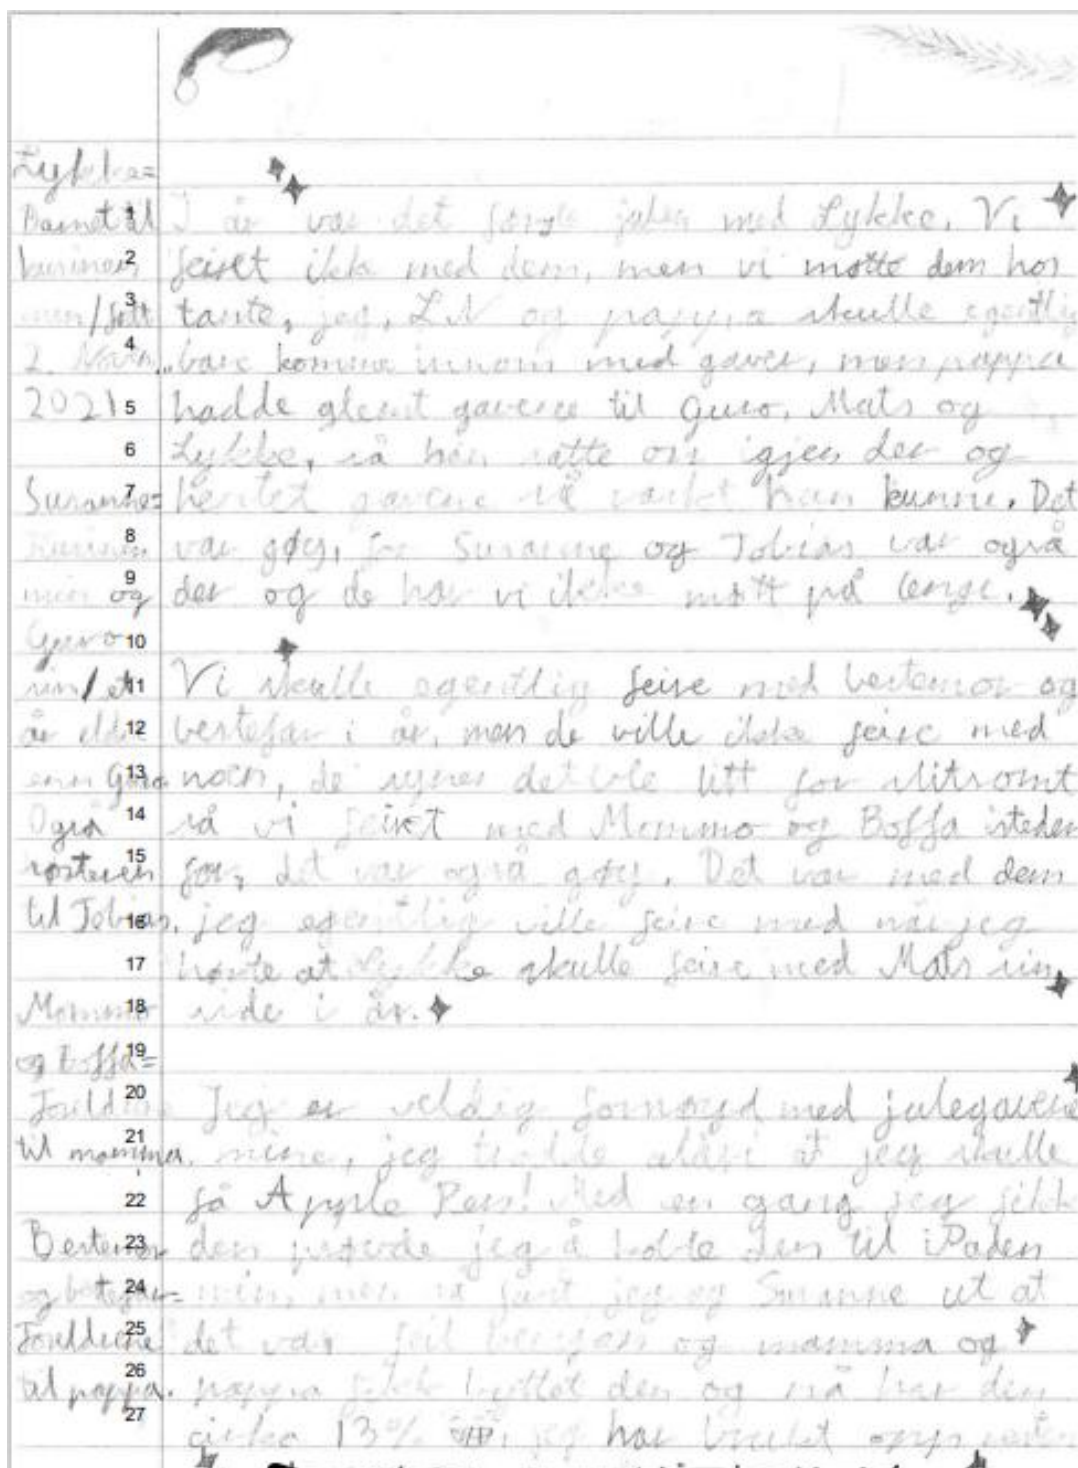 Lykke=
Barnet til
kusinen
min/født
2. Novem..
2021
Susanne=
Kusinen
min og
Guro
sin/ett
år eldre
enn Guro
Også
søsteren
til Tobias.
Mommo
og Boffa=
Foreldrene
til mamma.
Bestemor
og bestefar=
Foreldrene
til pappa.
1 I år var det første julen med Lykke. Vi
2 feiret ikke med dem, men vi møtte dem hos
3 tante, jeg, LN og pappa skulle egentlig
4 bare komme innom med gaver, men pappa
5 hadde glemt gavene til Guro, Mats og
6 Lykke, så han satte om igjen der og
7 hentet gavene så raskt han kunne. Det
8 var gøy, for Susanne og Tobias var også
9 der og de har vi ikke møtt på lenge.
10
11 Vi skulle egentlig feire med bestemor og
12 bestefar i år, men de ville ikke feire med
13 noen, de synes det ble litt for slitsomt
14 så vi feiret med Mommo og Boffa isteden
15 for, det var også gøy. Det var med dem
16 jeg egentlig ville feire med når jeg
17 hørte at Lykke skulle feire med Mats sin
18 side i år.
19
20 Jeg er veldig fornøyd med julegavene
21 mine, jeg trodde aldri at jeg skulle
22 få Apple Pen! Med en gang jeg fikk
23 den prøvde jeg å koble den til iPaden
24 min, men så fant jeg og Susanne ut at
25 det var feil og mamma og
26 pappa fikk byttet den og nå har den
27 cirka 13% jeg har brukt opp